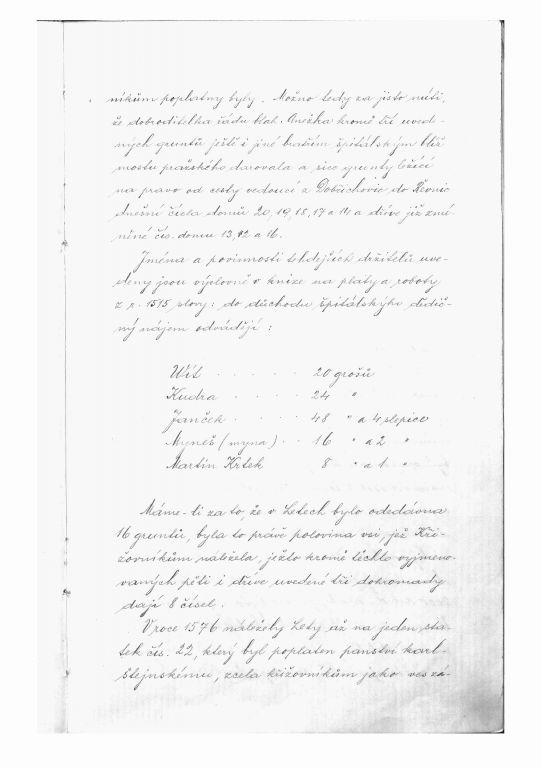 níkům poplatny byly. Možno tedy za jisto míti,
že dobroditelka řádu blah. Anežka kromě tří uvede-
ných gruntů ještě i jiné bratřím špitálským blíž
mostu pražského darovala a sice grunty ležící
na pravo od cesty vedoucí z Dobřichovic do Řevnic
dnešní čísla domů 20, 19, 18, 17 a 14 a dříve již zmí-
něné čís. domu 13, 12 a 16.
Jména a povinnosti tehdejších držitelů uve-
deny jsou výslovně v knize na platy a roboty
z r. 1515 slovy: do důchodu špitálskýho dědič-
ný nájem odvádějí:
Wít . . . . . 20 grošů
Kudra . . . . 24 "
Janček . . . . 48 " a 4 slepice
Myneš (myna) . . 16 " a 2 "
Martin Krtek 8 " a 1 "
Máme-li za to, že v Letech bylo odedávna
16 gruntů, byla to právě polovina vsi, jež Kři-
žovníkům náležela, ježto kromě těchto vyjmeno-
vaných pěti i dříve uvedené tři dohromady
dají 8 čísel.
V roce 1576 náležely Lety až na jeden sta-
tek čís. 22, který byl poplaten panství karl-
štejnskému, zcela křižovníkům jako ves zá-